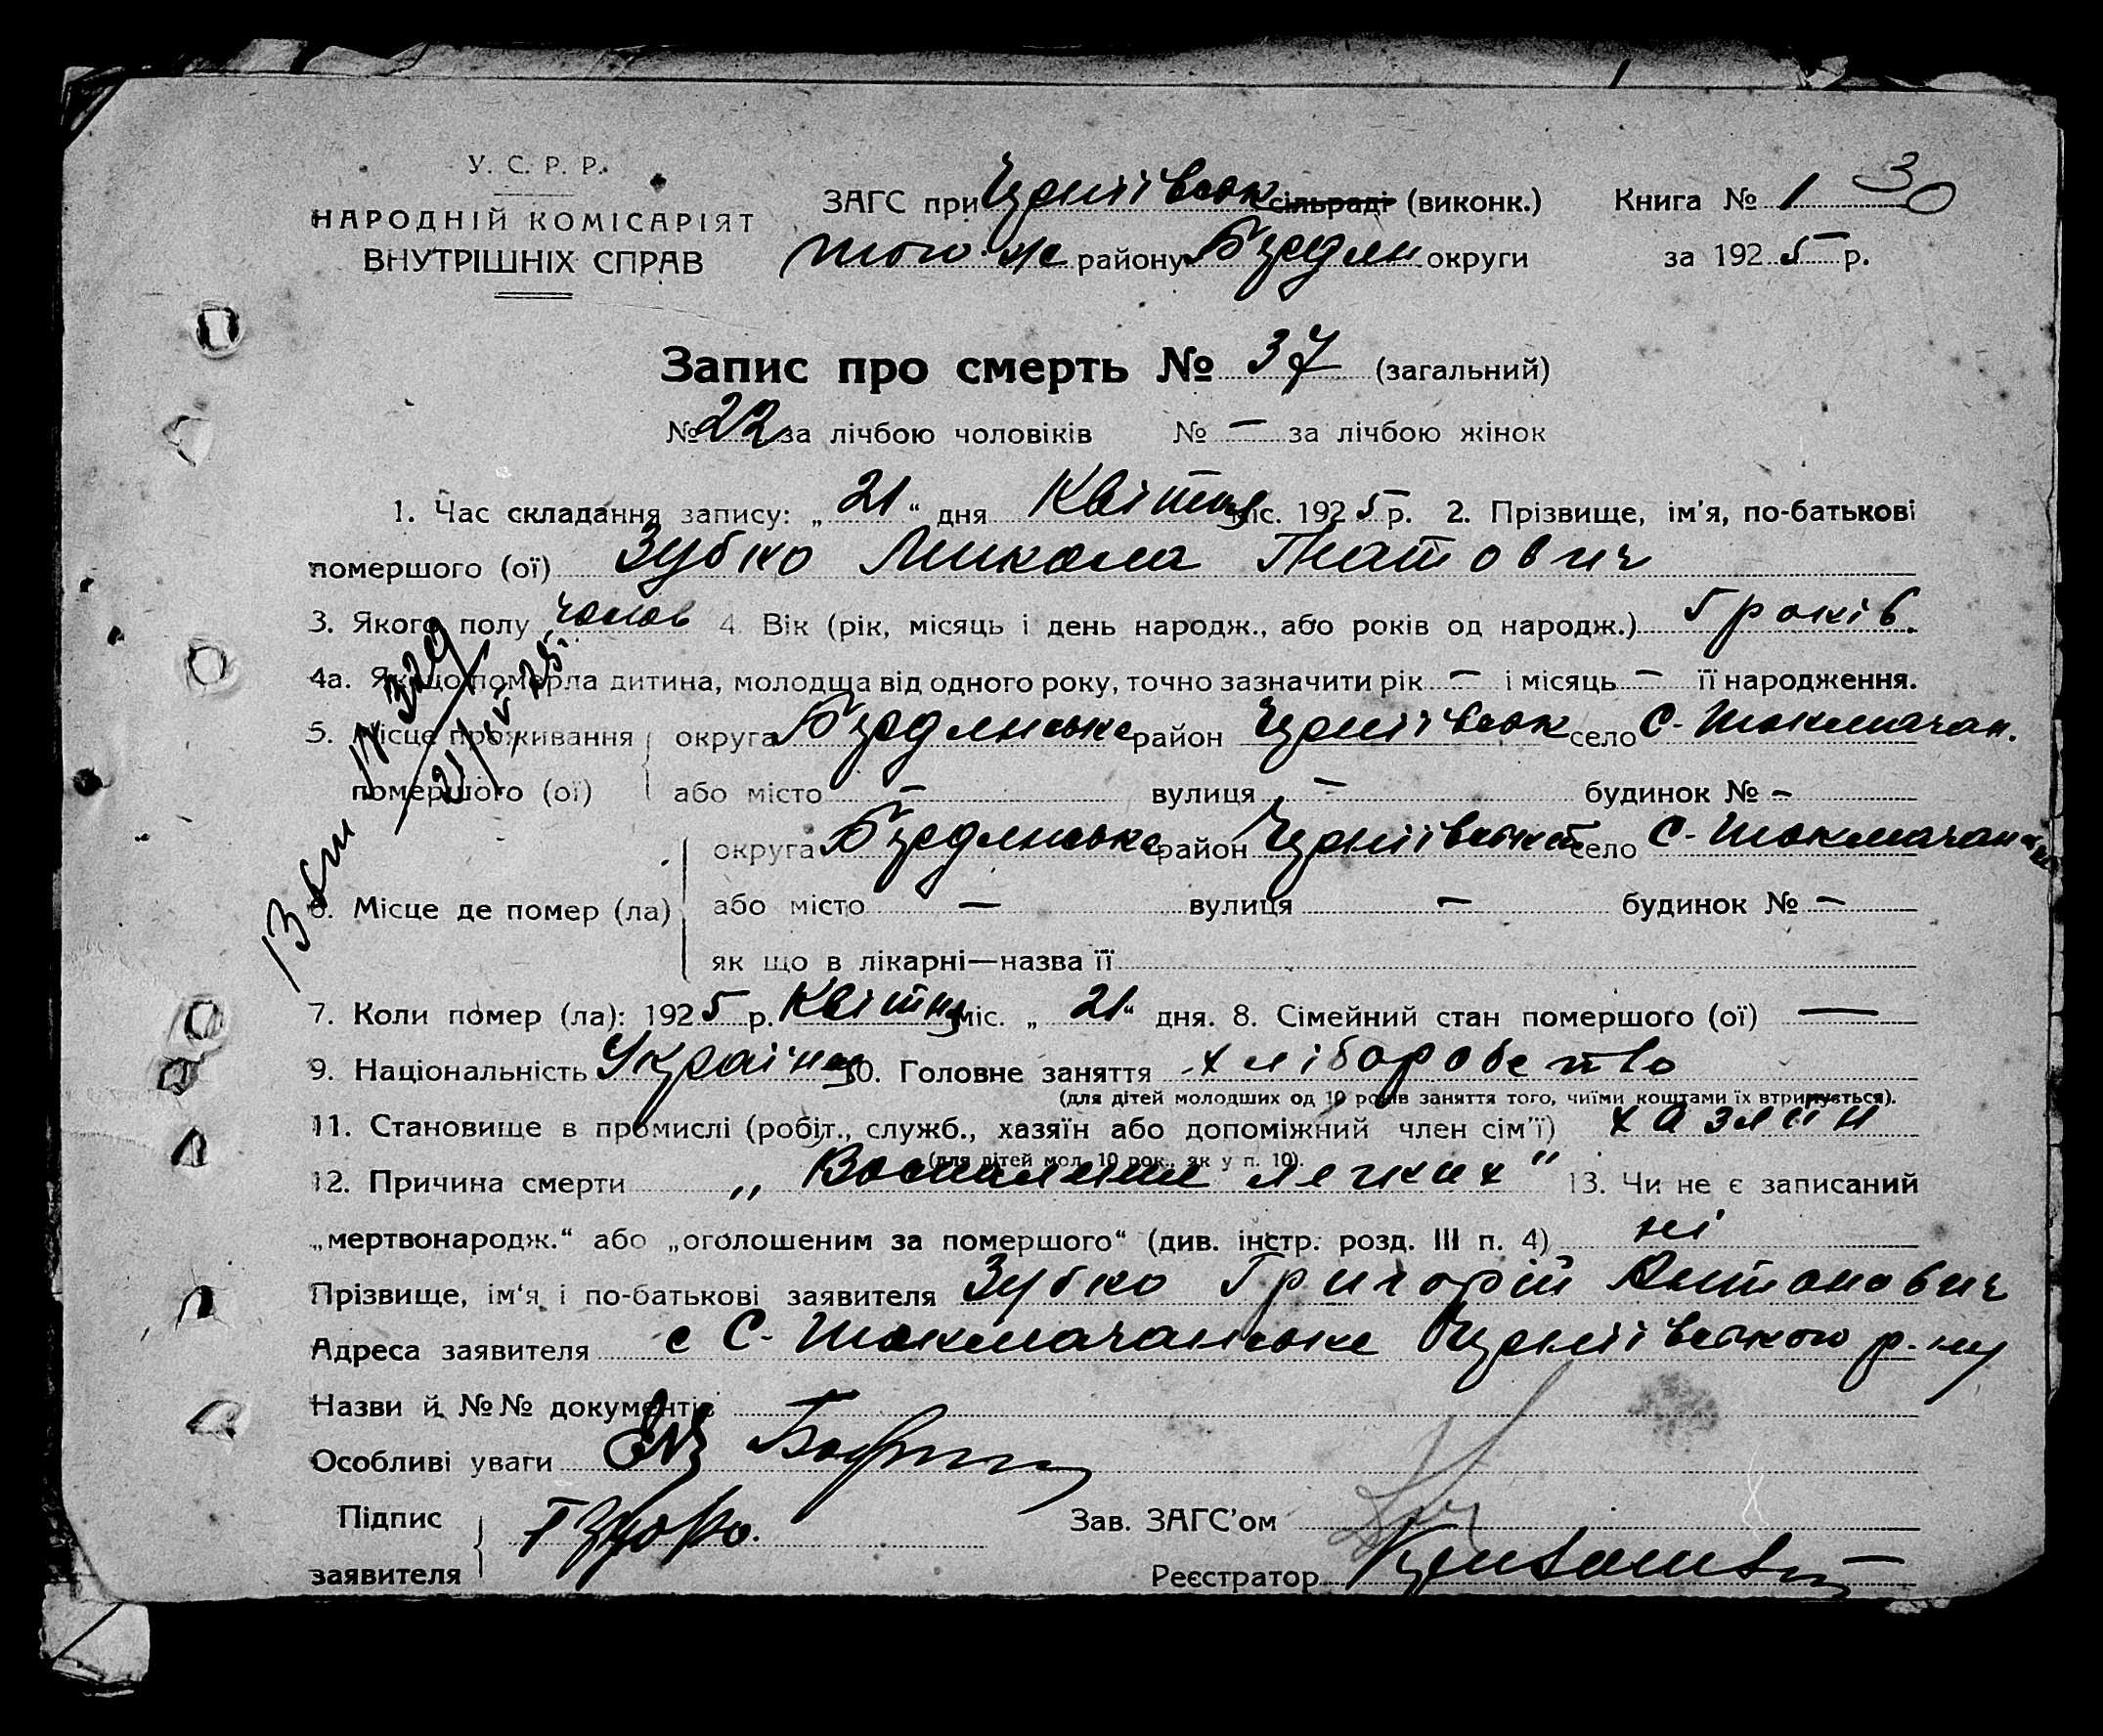 У. С. Р. Р.
НАРОДНІЙ КОМІСАРІЯТ
ВНУТРІШНІХ СПРАВ
ЗАГС при сільраді (виконк.)
того-же району Бердян округи
Книга № 1 30
за 1925 р.
Запис про смерть № 37 (загальний)
№ 22 за лічбою чоловіків № — за лічбою жінок
1. Час складання запису: „21“ дня Квітня міс. 1925 р. 2. Прізвище, ім'я, по-батькові
помершого (ої) Зубко Микола Гнатович
3. Якого полу чолов 4. Вік (рік, місяць і день народж., або років од народж.) 5 років.
4а. Якщо померла дитина, молодща від одного року, точно зазначити рік — і місяць — її народження.
5. Місце проживання округа Бердянське район село С-Токмачан.
помершого (ої) або місто — вулиця — будинок № —
округа Бердянське район село С-Токмачан
6. Місце де помер (ла) або місто — вулиця — будинок № —
як що в лікарні—назва її
7. Коли помер (ла): 1925 р. Квітня міс. „21“ дня. 8. Сімейний стан помершого (ої) —
9. Національність Україн 10. Головне заняття хліборобство
(для дітей молодших од 10 років заняття того, чиїми коштами їх втримується).
11. Становище в промислі (робіт., служб., хазяїн або допоміжний член сім'ї) хазяїн
(для дітей мол. 10 рок., як у п. 10).
12. Причина смерти „Воспаление легких" 13. Чи не є записаний
„мертвонародж.“ або „оголошеним за помершого“ (див. інстр. розд. III п. 4) ні
Прізвище, ім'я і по-батькові заявителя Зубко Григорій Антонович
Адреса заявителя с С-Токмачанське р-ну
Назви й №№ документів
Особливі уваги
Підпис
заявителя Г Зубко.
Зав. ЗАГС'ом
Реєстратор